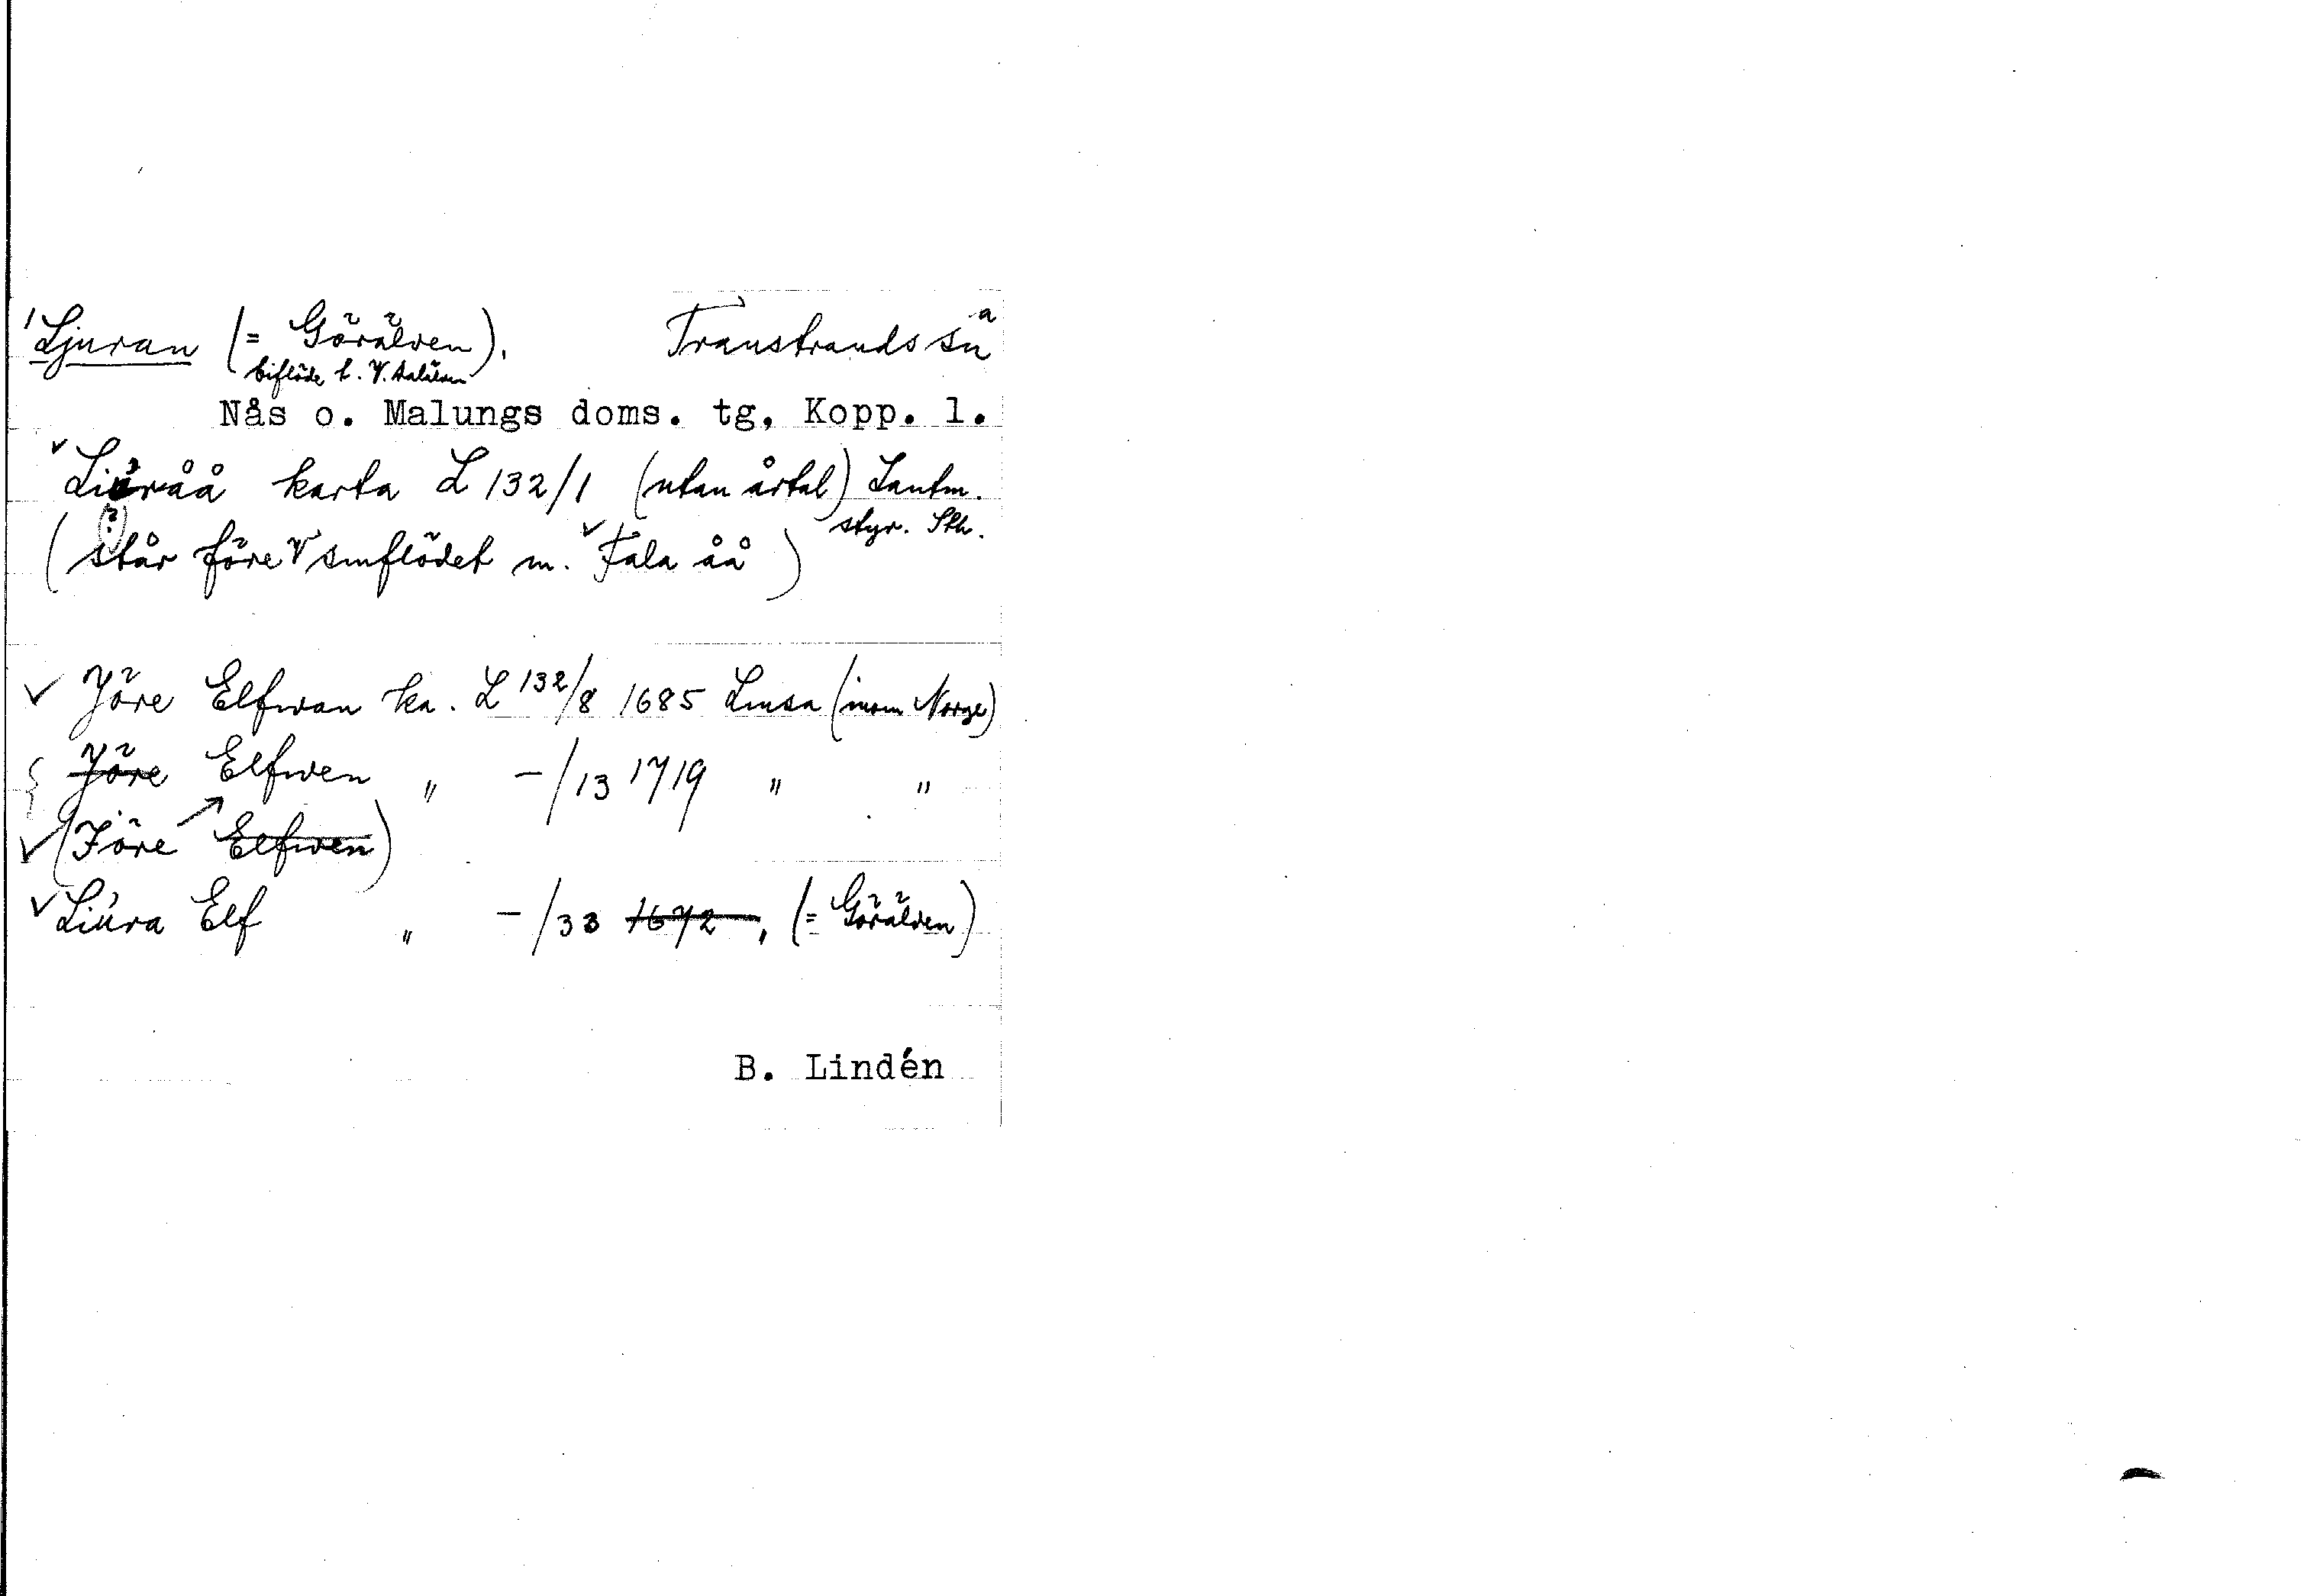 Ljuran (= Görälven). Transtrands sn
biflöde t. V. Dalälven
Nås o. Malungs doms. tg, Kopp. l.
Liuråå karta L 132/1 (utan årtal) Lantm.
styr. Sth.
(står före smflödet m. Fala åå)
Jöre Elfwan ka. L 132/8 1685 Lmsa (inom Norge)
Jöre Elfwen " -/13 1719 " "
(Jöre Elfwen)
Liura Elf " -/33 1672, (= Görälven)
B. Lindén